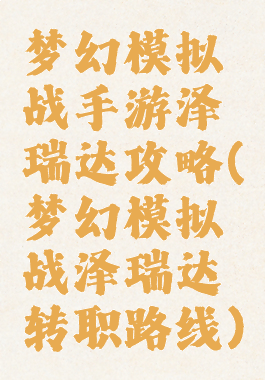 梦幻模拟
战手游泽
瑞达攻略(
梦幻模拟
战泽瑞达
转职路线)